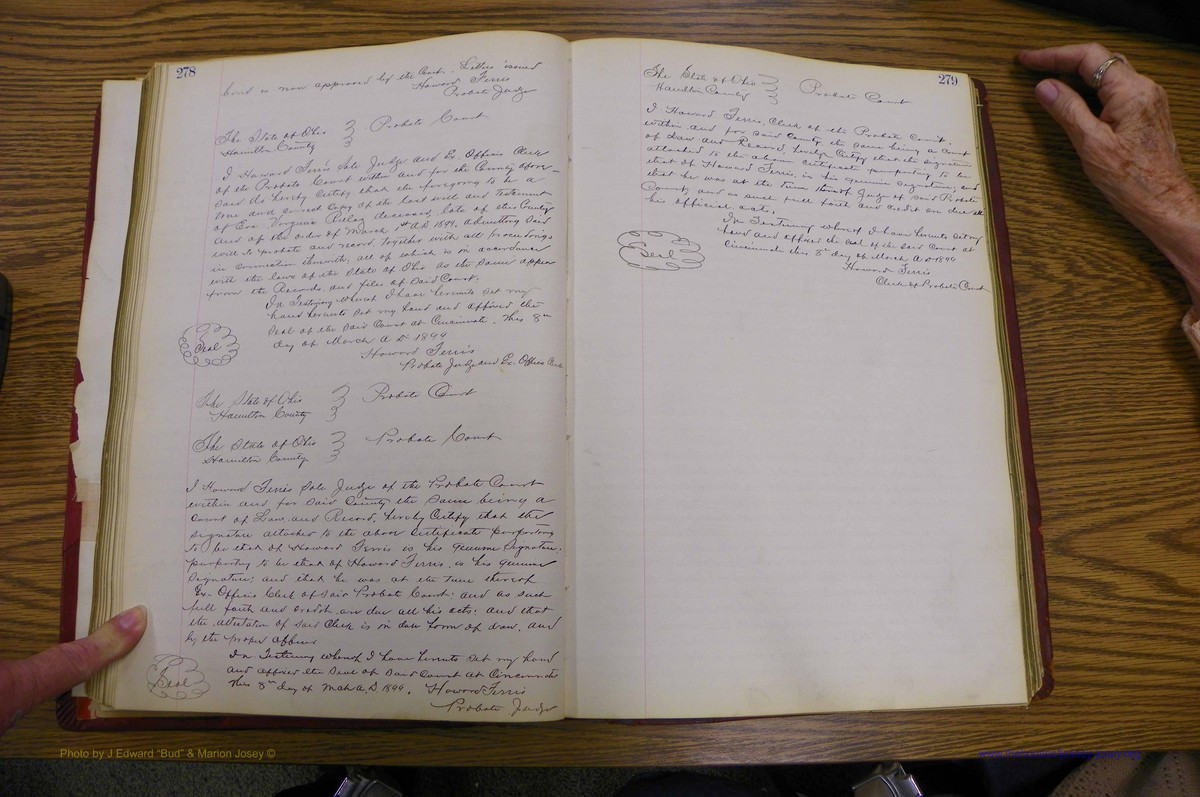 278
bond is now approved by the Court. Letters issued
Howard Ferris
Probate Judge
The State of Ohio
Hamilton County
Probate Court
I Howard Ferris Sole Judge and Ex. Officio Clerk
of the Probate Court within and for the County afore-
said do hereby Certify that the foregoing to be a
true and correct copy of the last will and Testament
of Eva Virginia deceased, late of this County
and of the order of March 1st A.D. 1899. admitting said
will to probate and record, together with all proceedings
in connection therewith, all of which is in accordance
with the laws of the State of Ohio as the same appear
from the Records, and files of said Court.
In Testimony whereof I have hereunto set my
hand hereunto set my hand and affixed the
Seal of the said Court at Cincinnati. This 8th
day of March A D 1899
Seal
Howard Ferris
Probate Judge and Ex. Officio Clerk
The State of Ohio
Hamilton County
Probate Court
The State of Ohio
Hamilton County
Probate Court
I Howard Ferris Sole Judge of the Probate Court
within and for said County the same being a
Court of Law and Record, hereby Certify that the
signature attached to the above certificate purporting
to be that of Howard Ferris is his genuine Signature.
purporting to be that of Howard Ferris. is his genuine
Signature; and that he was at the time thereof
Ex-Officio Clerk of said Probate Court: and as such
full faith and credit are due all his acts: and that
the attestation of said Clerk is in due form of law, and
by the proper officer
In Testimony whereof I have hereunto set my hand
and affixed the Seal of said Court at Cincinnati
this 8th day of Mch A.D 1899. Howard Ferris
Probate Judge
Seal
279
The State of Ohio
Hamilton County
Probate Court
I Howard Ferris, Clerk of the Probate Court.
within and for said County the same being a Court
of Law and Record, hereby Certify that the signature
attached to the above certificate purporting to be
that of Howard Ferris, is his genuine signature, and
that he was at the time thereof Judge of said Probate
County and as such full faith and credit are due all
his official acts.
In Testimony whereof I have hereunto set my
hand and affixed the Seal of the said Court at
Cincinnati this 8th day of March A D 1899
Seal
Howard Ferris
Clerk of Probate Court
Photo by J Edward "Bud" & Marion Josey ©